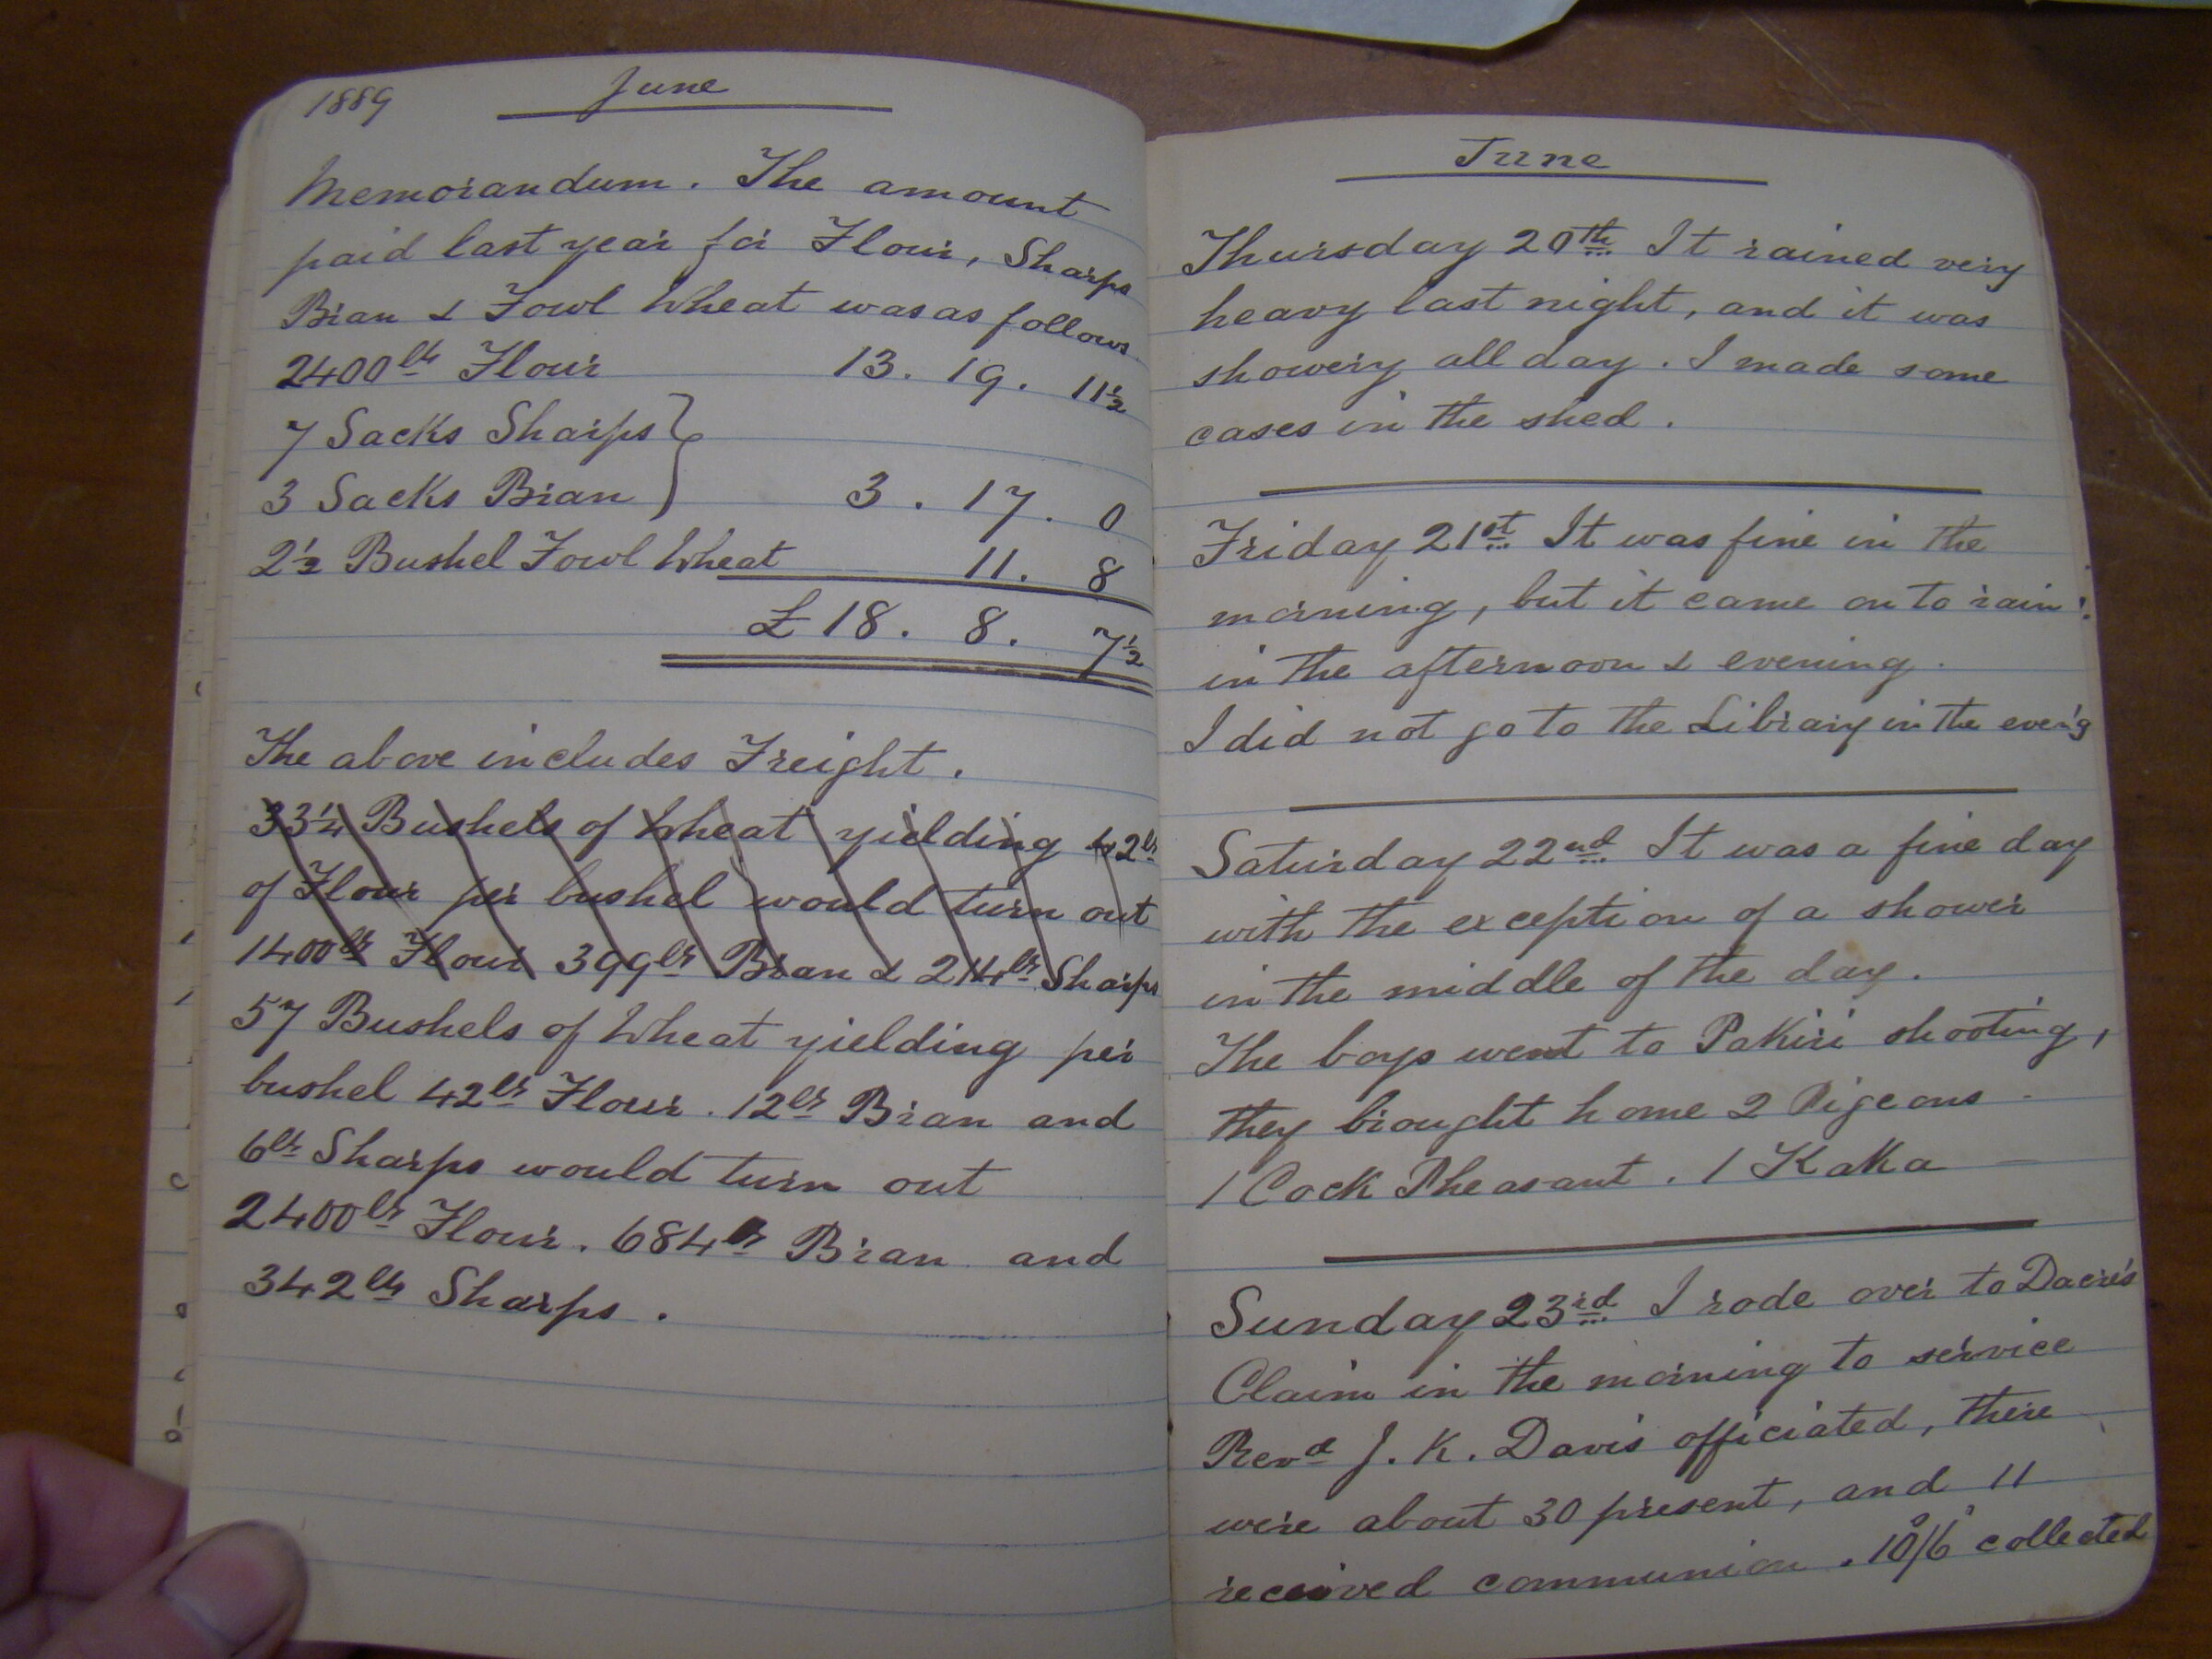 1889 June
Memorandum. The amount
paid last year for Flour, Sharps
Bran & Fowl Wheat was as follows
2400lbs Flour 13. 19. 11½
7 Sacks Sharps }
3 Sacks Bran } 3. 17. 0
2½ Bushel Fowl Wheat 11. 8
£18. 8. 7½
The above includes Freight.
33¼ Bushels of Wheat yielding 42lbs
of Flour per bushel would turn out
1400lbs Flour 399lbs Bran & 214lbs Sharps
57 Bushels of Wheat yielding per
bushel 42lbs Flour. 12lbs Bran and
6lbs Sharps would turn out
2400lbs Flour. 684lbs Bran and
342lbs Sharps.
June
Thursday 20th It rained very
heavy last night, and it was
showery all day. I made some
cases in the shed.
Friday 21st It was fine in the
morning, but it came on to rain
in the afternoon & evening.
I did not go to the Library in the even'g
Saturday 22nd It was a fine day
with the exception of a shower
in the middle of the day.
The boys went to Pakiri shooting,
they brought home 2 Pigeons
1 Cock Pheasant. 1 Kaka
Sunday 23rd I rode over to Dacre's
Claim in the morning to service
Revd J. K. Davis officiated, there
were about 30 present, and 11
received communion. 10/6 collected